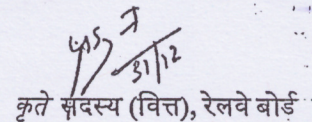 31/12
कृते सदस्य (वित्त), रेलवे बोर्ड